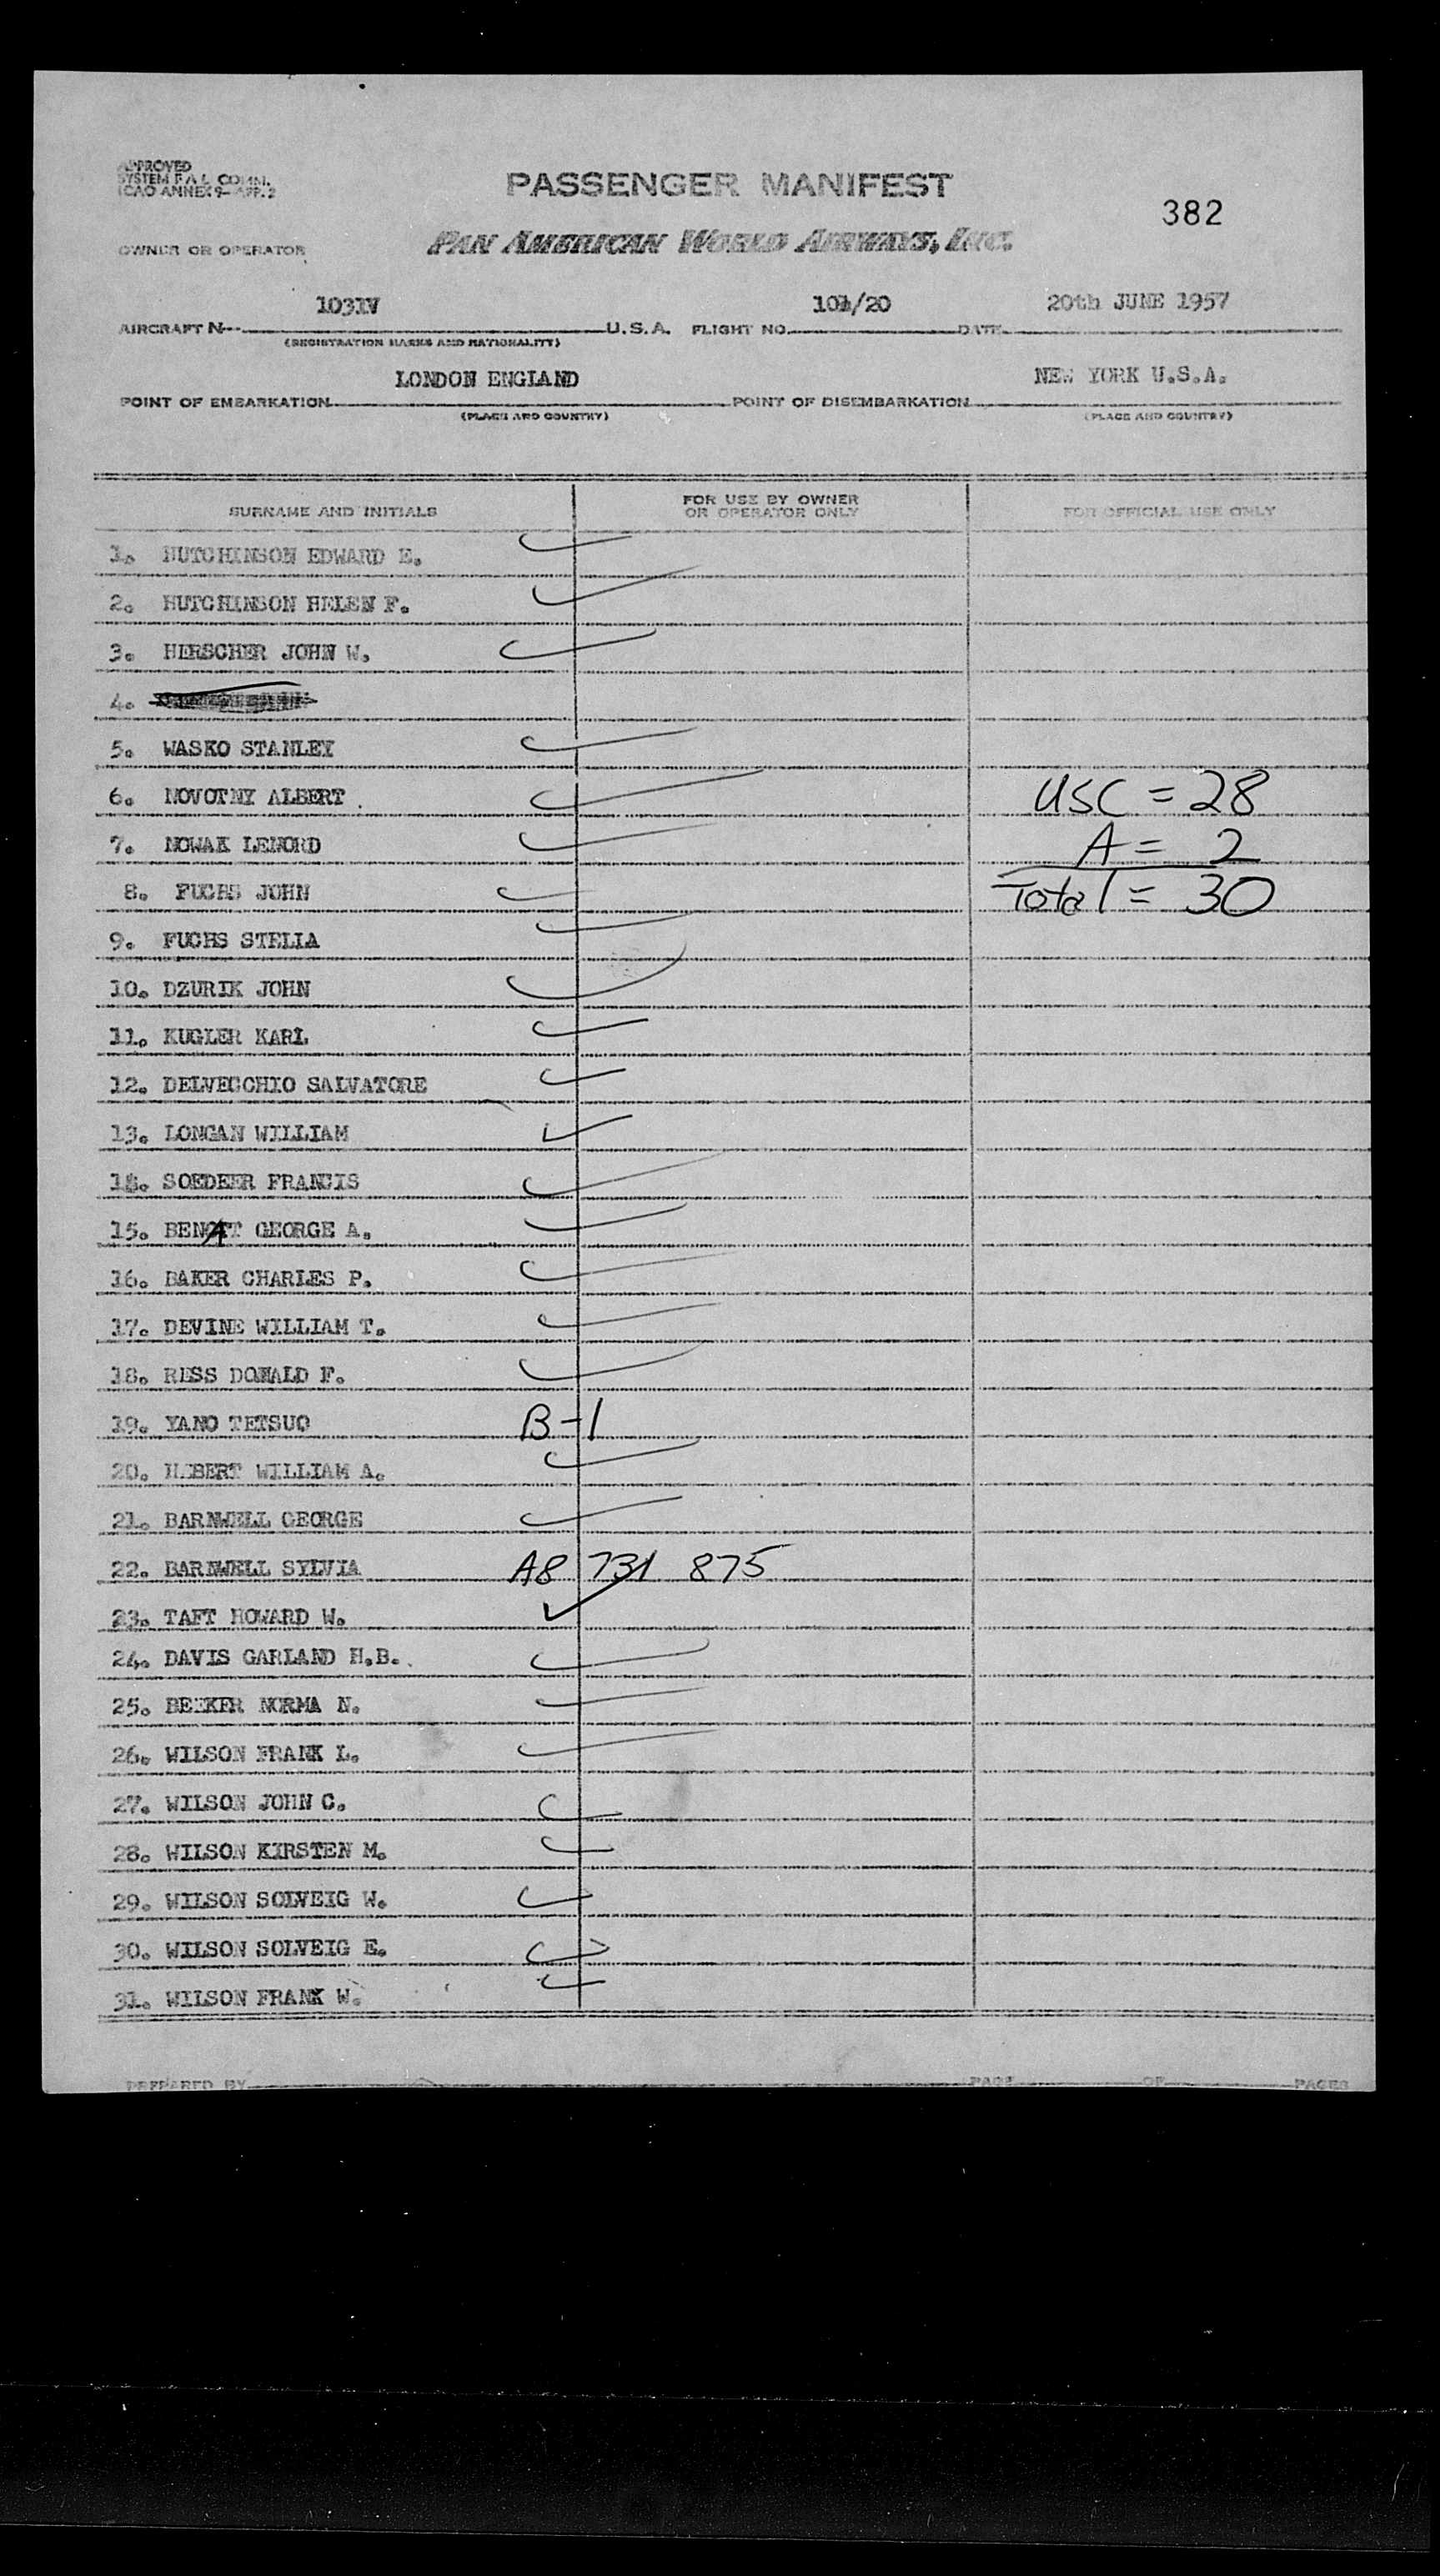 APPROVED
SYSTEM F.A.L. COMM.
ICAO ANNEX 9-APP.2
PASSENGER MANIFEST
382
OWNER OR OPERATOR
PAN AMERICAN WORLD AIRWAYS, INC.
1031V 20th JUNE 1957
AIRCRAFT N U.S.A. FLIGHT NO. DATE
(REGISTRATION MARKS AND NATIONALITY)
LONDON ENGLAND NEW YORK U.S.A.
POINT OF EMBARKATION POINT OF DISEMBARKATION
(PLACE AND COUNTRY) (PLACE AND COUNTRY)
SURNAME AND INITIALS FOR USE BY OWNER OR OPERATOR ONLY FOR OFFICIAL USE ONLY
1. HUTCHINSON EDWARD E.
2. HUTCHINSON HELEN F.
3. HERSCHER JOHN W.
4.
5. WASKO STANLEY
6. NOVOTNY ALBERT USC = 28
7. NOWAK LENORD A = 2
8. FUCHS JOHN Total = 30
9. FUCHS STELLA
10. DZURIK JOHN
11. KUGLER KARL
12. DELVECCHIO SALVATORE
13. LONGAN WILLIAM
14. SOEDEER FRANCIS
15. BENOAT GEORGE A.
16. BAKER CHARLES P.
17. DEVINE WILLIAM T.
18. RESS DONALD F.
19. YANO TETSUO B-1
20. HEBERT WILLIAM A.
21. BARNWELL GEORGE
22. BARNWELL SYLVIA A8 731 875
23. TAFT HOWARD W.
24. DAVIS GARLAND H.B.
25. BEEKER NORMA N.
26. WILSON FRANK L.
27. WILSON JOHN C.
28. WILSON KIRSTEN M.
29. WILSON SOLVEIG W.
30. WILSON SOLVEIG E.
31. WILSON FRANK W.
PREPARED BY PAGE OF PAGES